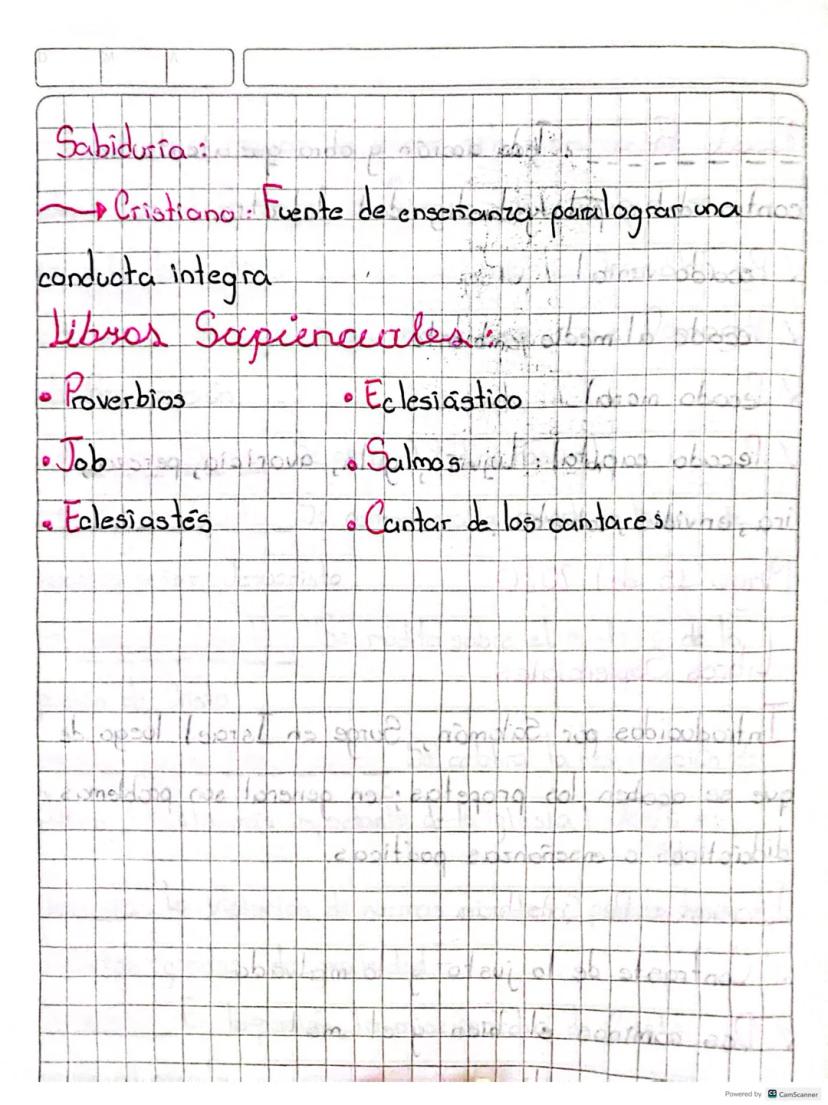 Sabiduría:
→ Cristiano: Fuente de enseñanza para lograr una
conducta integra
Libros Sapienciales:
• Proverbios • Eclesiástico
• Job • Salmos
• Eclesiastés • Cantar de los cantares
Powered by CS CamScanner